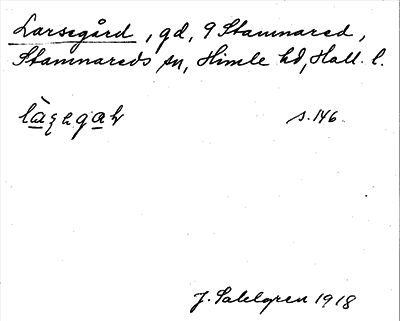 Larsegård, gd, 9 Stamnared,
Stamnareds sn, Himle hd, Hall. l.
s. 146
J. Sahlgren 1918